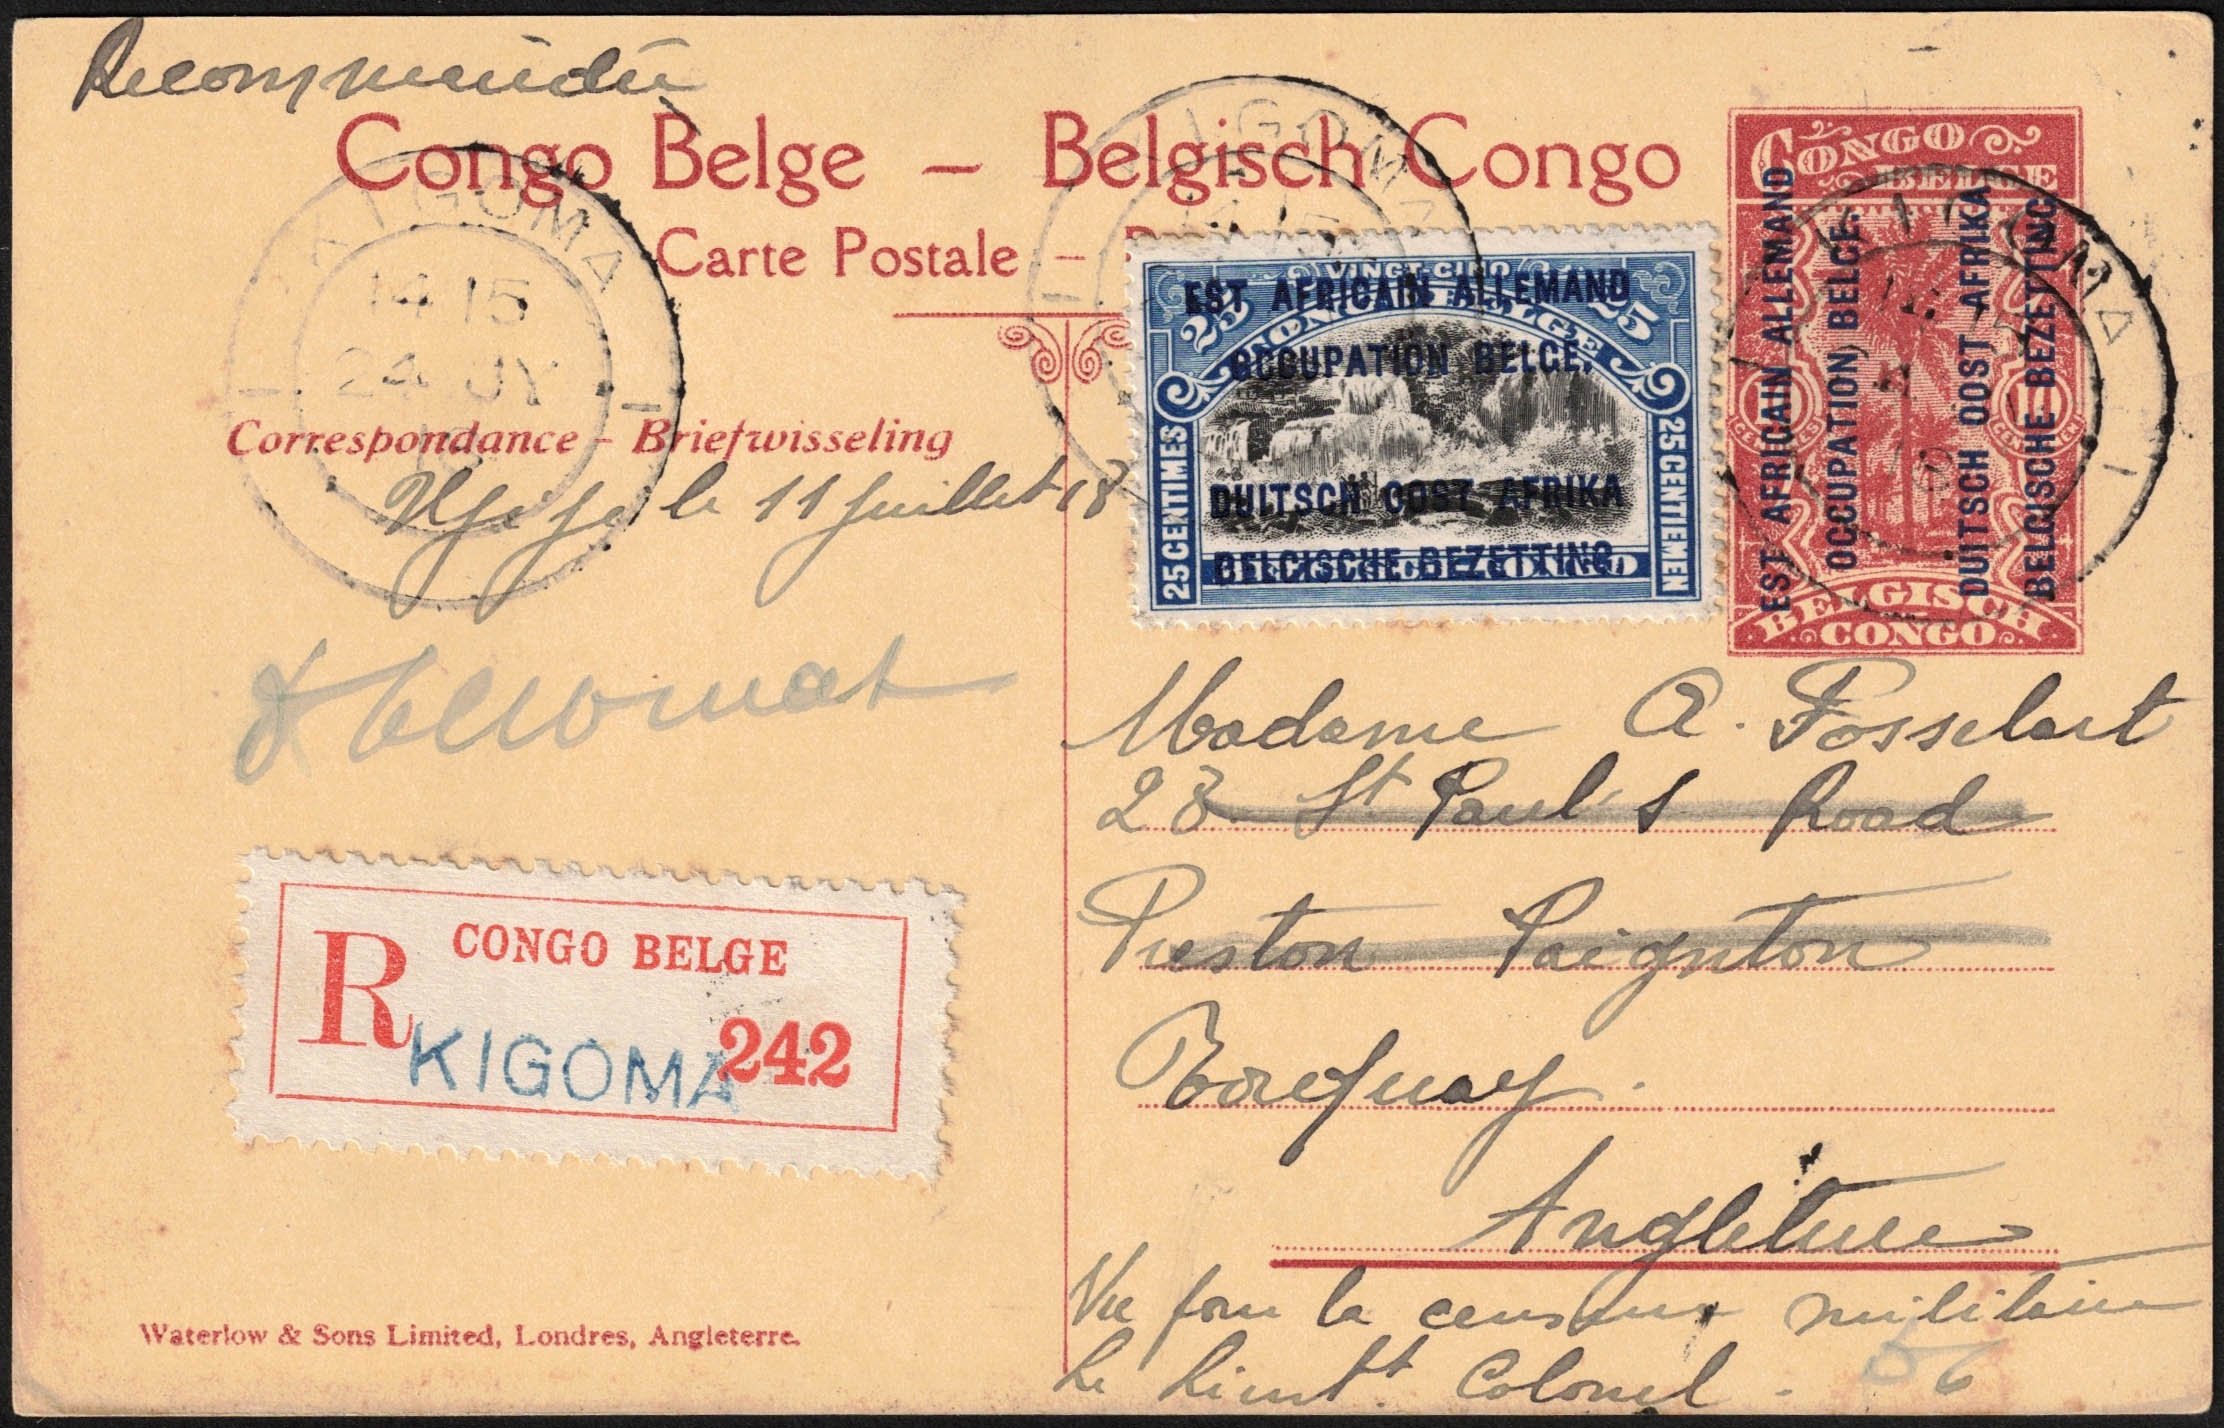 Recommandée
Congo Belge – Belgisch Congo
Carte Postale –
KIGOMA
14 15
24 JY
KIGOMA
14 15
Correspondance – Briefwisseling
le 11 Juillet 18
CONGO BELGE
BELGISCH CONGO
EST AFRICAIN ALLEMAND
OCCUPATION BELGE.
DUITSCH OOST AFRIKA
BELGISCHE BEZETTING
VINGT-CINQ
25 25
CONGO BELGE
25 CENTIMES
25 CENTIEMEN
BELGISCH CONGO
EST AFRICAIN ALLEMAND
OCCUPATION BELGE.
DUITSCH OOST AFRIKA
BELGISCHE BEZETTING.
Madame A. Fosselart
23 St Paul's Road
Preston Paignton
Torquay.
Angleterre
R
CONGO BELGE
KIGOMA
242
Vu pour la censure militaire
Le Lieutt Colonel.
56
Waterlow & Sons Limited, Londres, Angleterre.